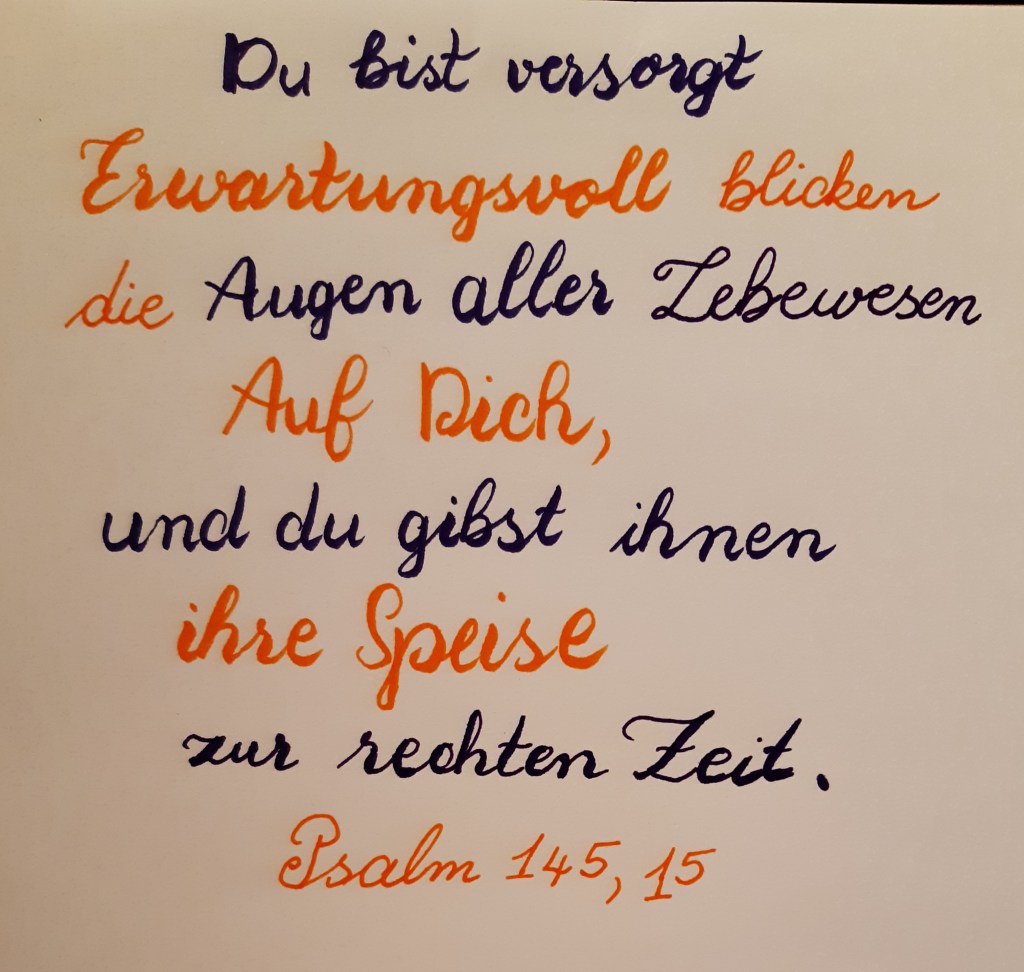 Du bist versorgt
Erwartungsvoll blicken
die Augen aller Lebewesen
Auf Dich,
und du gibst ihnen
ihre Speise
zur rechten Zeit.
Psalm 145, 15